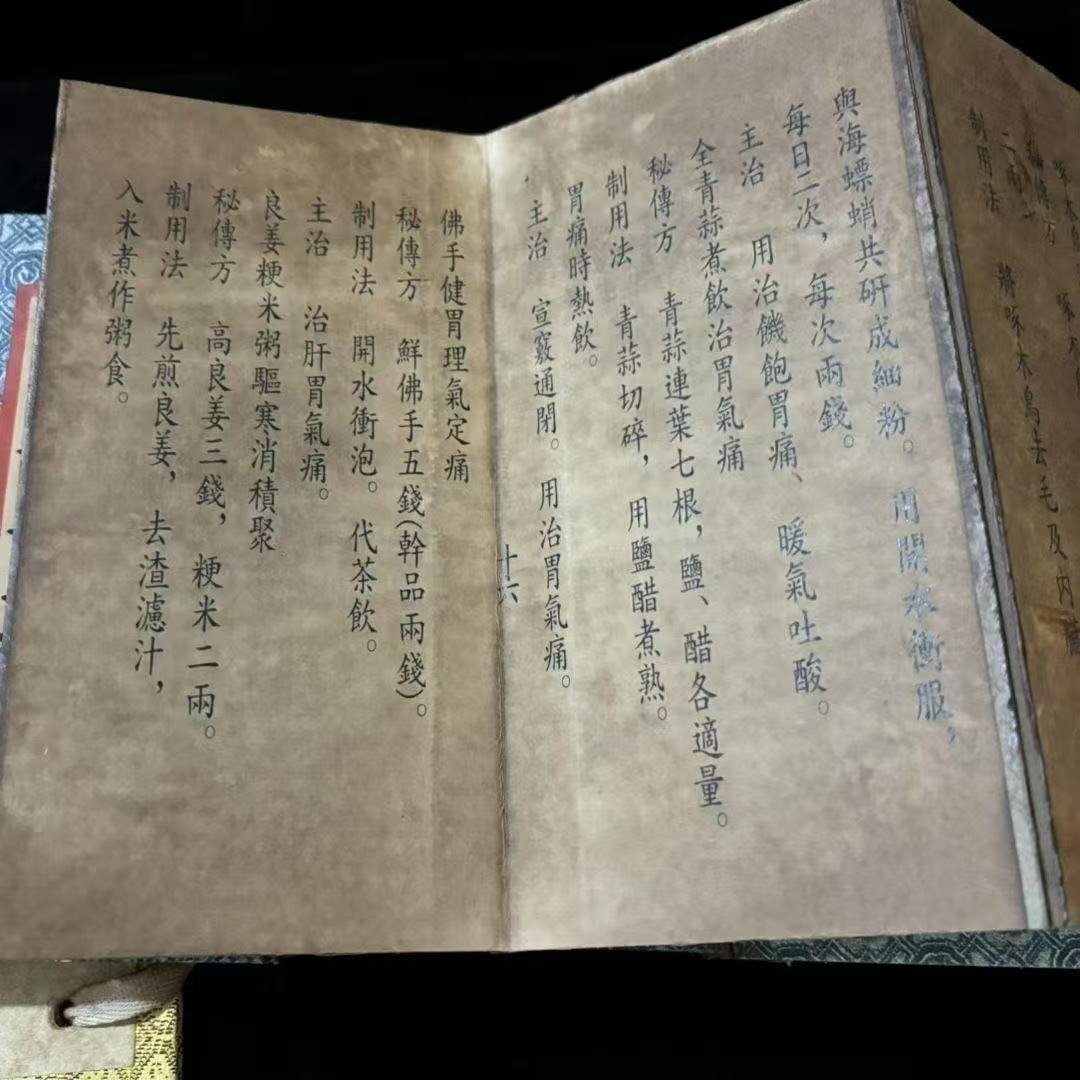 制用法 將啄木鳥去毛及内臟
與海螵蛸共研成細粉。用開水衝服，
每日二次，每次兩錢。
主治 用治饑飽胃痛、暖氣吐酸。
全青蒜煮飲治胃氣痛
秘傳方 青蒜連葉七根，鹽、醋各適量。
制用法 青蒜切碎，用鹽醋煮熟。
胃痛時熱飲。
主治 宣竅通閉。用治胃氣痛。
十六
佛手健胃理氣定痛
秘傳方 鮮佛手五錢(幹品兩錢)。
制用法 開水衝泡。代茶飲。
主治 治肝胃氣痛。
良姜粳米粥驅寒消積聚
秘傳方 高良姜三錢，粳米二兩。
制用法 先煎良姜，去渣濾汁，
入米煮作粥食。